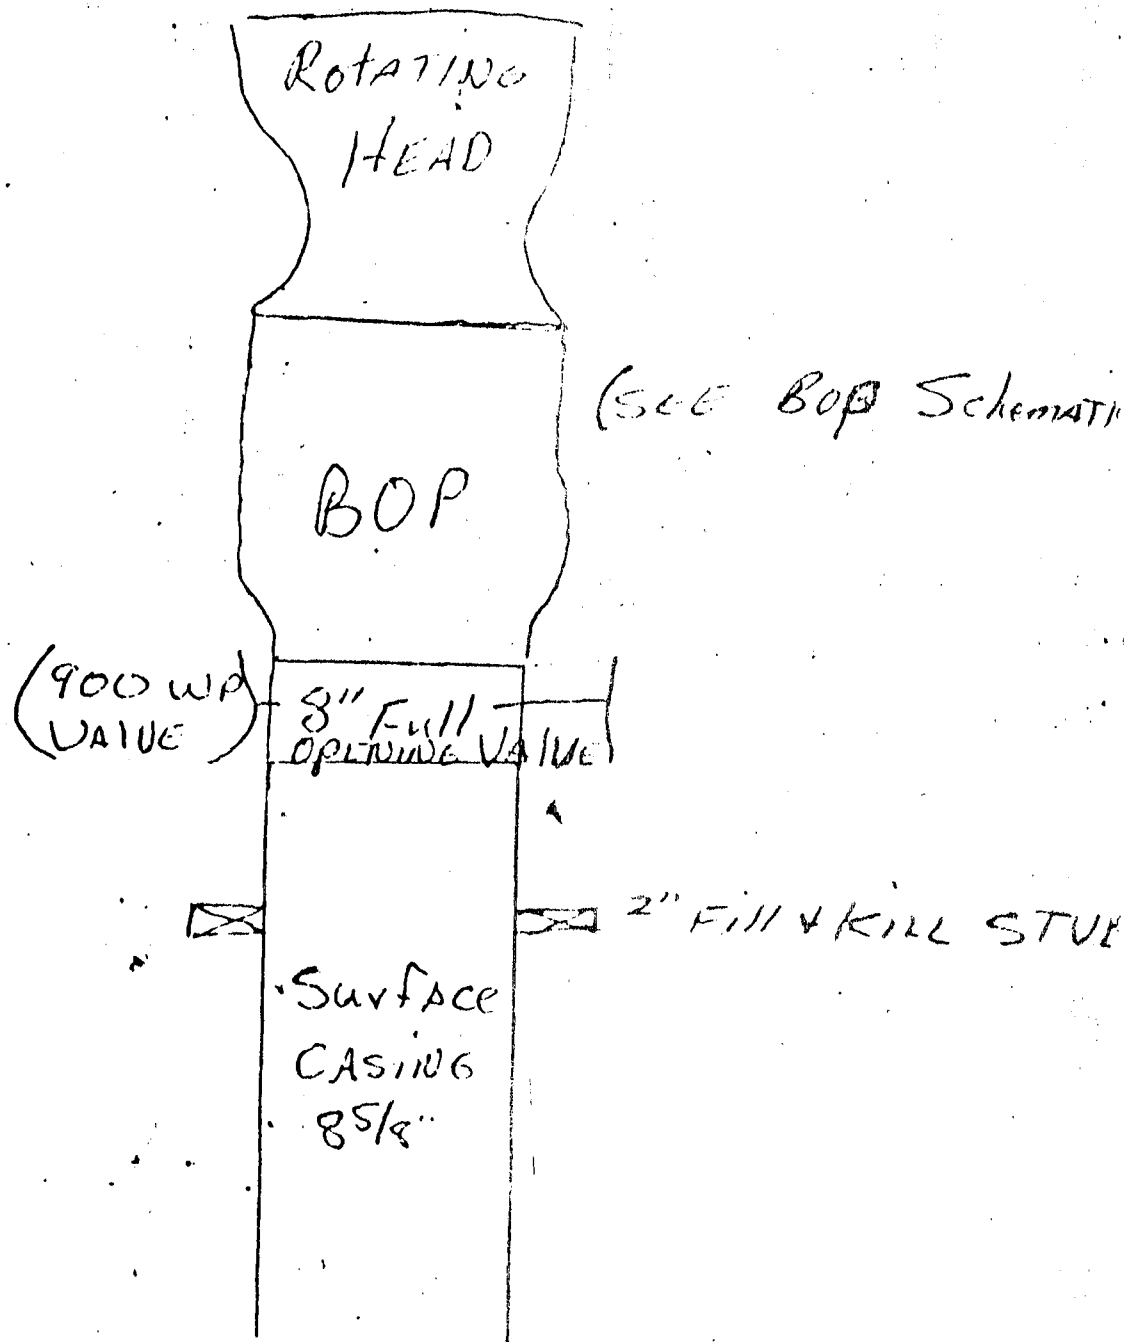 ROTATING
HEAD
(SEE BOP Schemati
BOP
(900 WP
VALVE)
8" Full
OPENING VALVE
2" Fill & KILL STU
Surface
CASING
8 5/8"